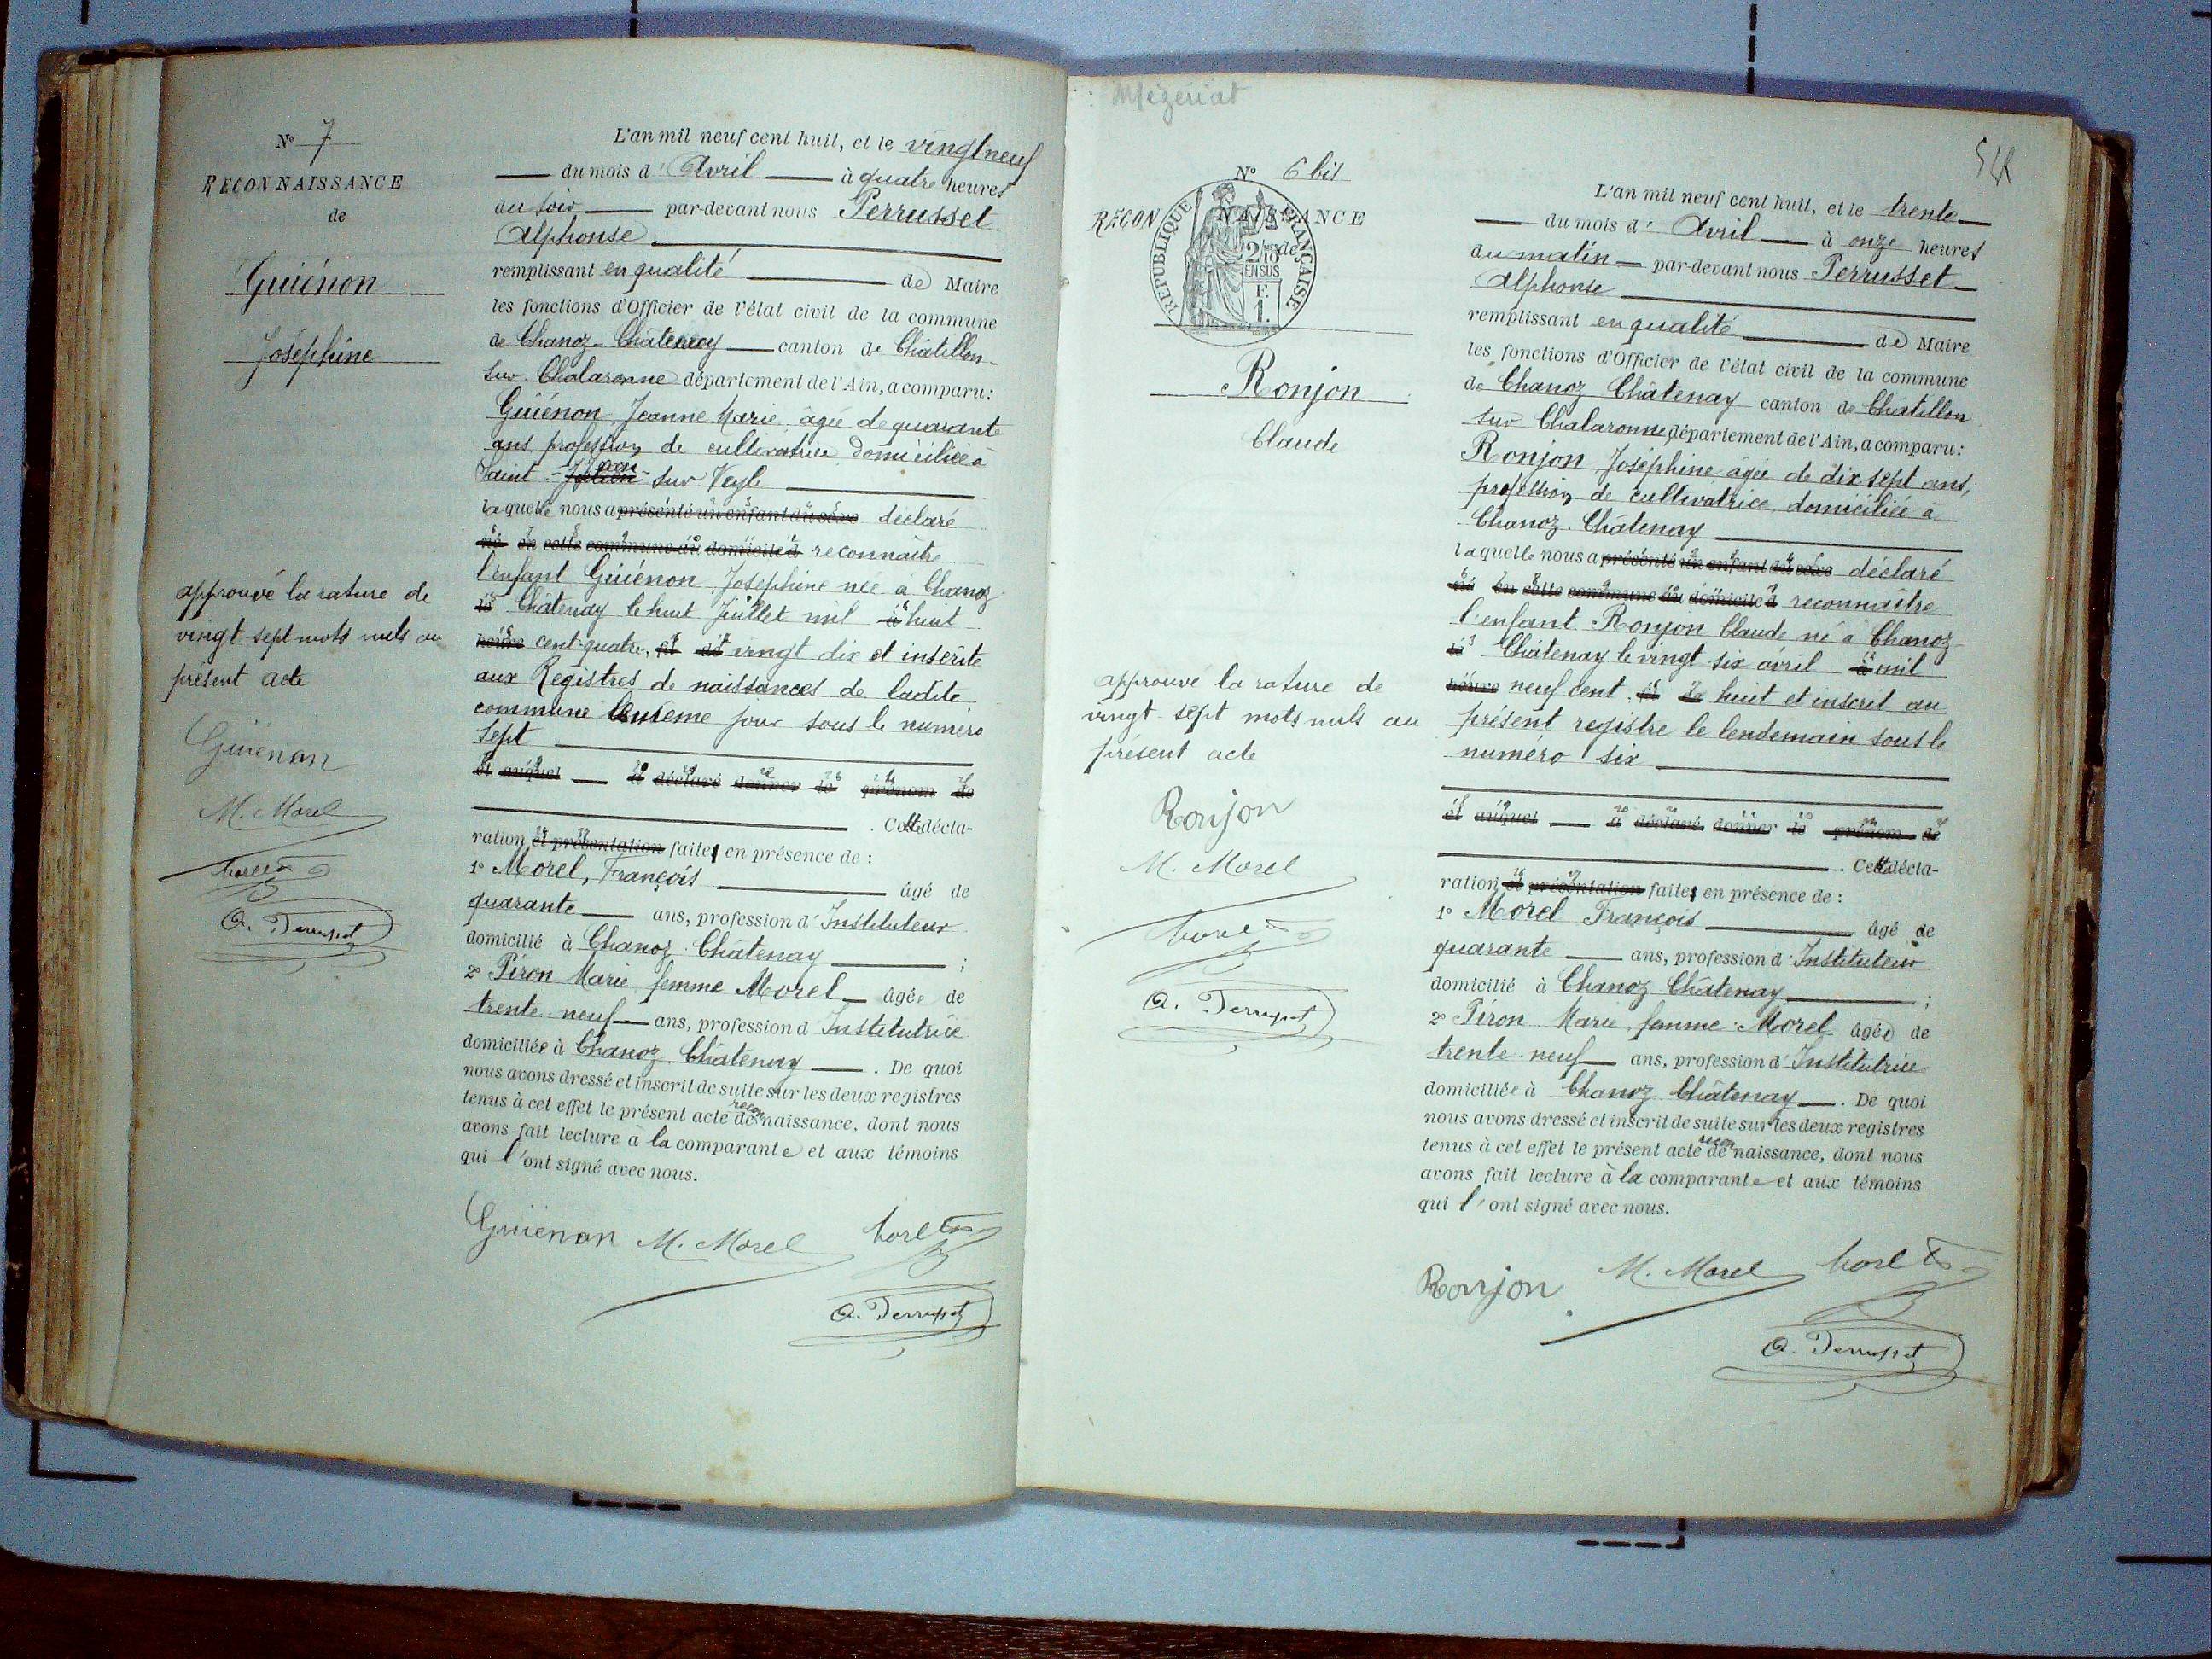 N° 7
RECONNAISSANCE
de
Guiénon
Joséphine
approuvé la rature de
vingt sept mots nuls au
présent acte
Guienon
M. Morel
A. Perrusset
L'an mil neuf cent huit, et le vingt neuf
du mois d' Avril à quatre heures
du soir par-devant nous Perrusset
Alphonse
remplissant en qualité de Maire
les fonctions d'Officier de l'état civil de la commune
de Chanoz-Châtenay canton de Châtillon
sur Chalaronne département de l'Ain, a comparu:
Guiénon Jeanne Marie âgée de quarante
ans profession de cultivatrice domiciliée à
Saint - Jean sur Veyle
laquelle nous a présenté un enfant du sexe déclaré
né en cette commune au domicile à reconnaître
l'enfant Guiénon Joséphine née à Chanoz
Châtenay le huit Juillet mil à huit
heures cent quatre, et vingt dix et inscrite
aux Registres de naissances de ladite
commune le même jour sous le numéro
sept
Et auquel a déclaré donner le prénom de
Cette décla-
ration et présentation faites en présence de :
1° Morel, François âgé de
quarante ans, profession d'Instituteur
domicilié à Chanoz Châtenay ;
2° Piron Marie femme Morel âgée de
trente neuf ans, profession d'Institutrice
domiciliée à Chanoz Châtenay . De quoi
nous avons dressé et inscrit de suite sur les deux registres
tenus à cet effet le présent acte de reconnaissance, dont nous
avons fait lecture à la comparante et aux témoins
qui l'ont signé avec nous.
Guienon M. Morel
A. Perrusset
Mézeriat
N° 6 bis
RECONNAISSANCE
de
REPUBLIQUE FRANÇAISE
2/10
EN SUS
F.
1.
Ronjon
Claude
approuvé la rature de
vingt-sept mots nuls au
présent acte
Ronjon
M. Morel
A. Perrusset
L'an mil neuf cent huit, et le trente
du mois d' Avril à onze heures
du matin par-devant nous Perrusset
Alphonse
remplissant en qualité de Maire
les fonctions d'Officier de l'état civil de la commune
de Chanoz Châtenay canton de Châtillon
sur Chalaronne département de l'Ain, a comparu:
Ronjon Joséphine âgée de dix sept ans,
profession de cultivatrice domiciliée à
Chanoz-Châtenay
laquelle nous a présenté un enfant du sexe déclaré
né en cette commune au domicile à reconnaître
l'enfant Ronjon Claude né à Chanoz
Châtenay le vingt six avril à mil
heures neuf cent huit et inscrit au
présent registre le lendemain sous le
numéro six
et auquel a déclaré donner le prénom de
Cette décla-
ration et présentation faites en présence de :
1° Morel François âgé de
quarante ans, profession d'Instituteur
domicilié à Chanoz Châtenay ;
2° Piron Marie femme Morel âgée de
trente neuf ans, profession d'Institutrice
domiciliée à Chanoz Châtenay . De quoi
nous avons dressé et inscrit de suite sur les deux registres
tenus à cet effet le présent acte de reconnaissance, dont nous
avons fait lecture à la comparante et aux témoins
qui l'ont signé avec nous.
Ronjon M. Morel
A. Perrusset